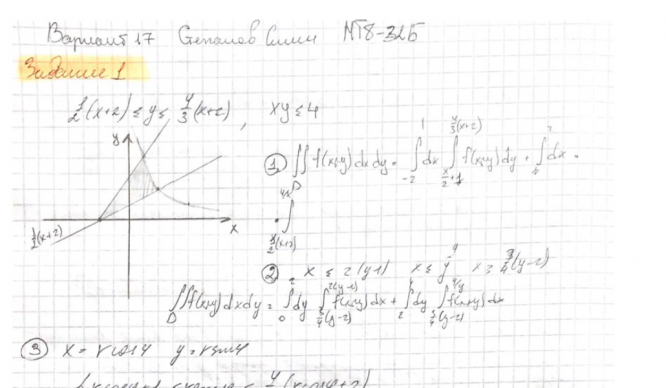 Вариант 17 Степанов Семён МТ8-32Б
Задание 1
1/2(x+2) ≤ y ≤ 4/3(x+2), xy ≤ 4
y
x
1/2(x+2)
① ∬_D f(x,y) dx dy = ∫_{-2}^{1} dx ∫_{x/2+1}^{4/3(x+2)} f(x,y) dy + ∫ dx ·
· ∫_{1/2(x+2)}^{4/x}
② x ≤ 2(y-1) x ≤ 4/y x ≥ 3/4(y-2)
∬_D f(x,y) dx dy = ∫_0^2 dy ∫_{3/4(y-2)}^{2(y-1)} f(x,y) dx + ∫_2^4 dy ∫_{3/4(y-2)}^{4/y} f(x,y) dx
③ x = r cos φ y = r sin φ